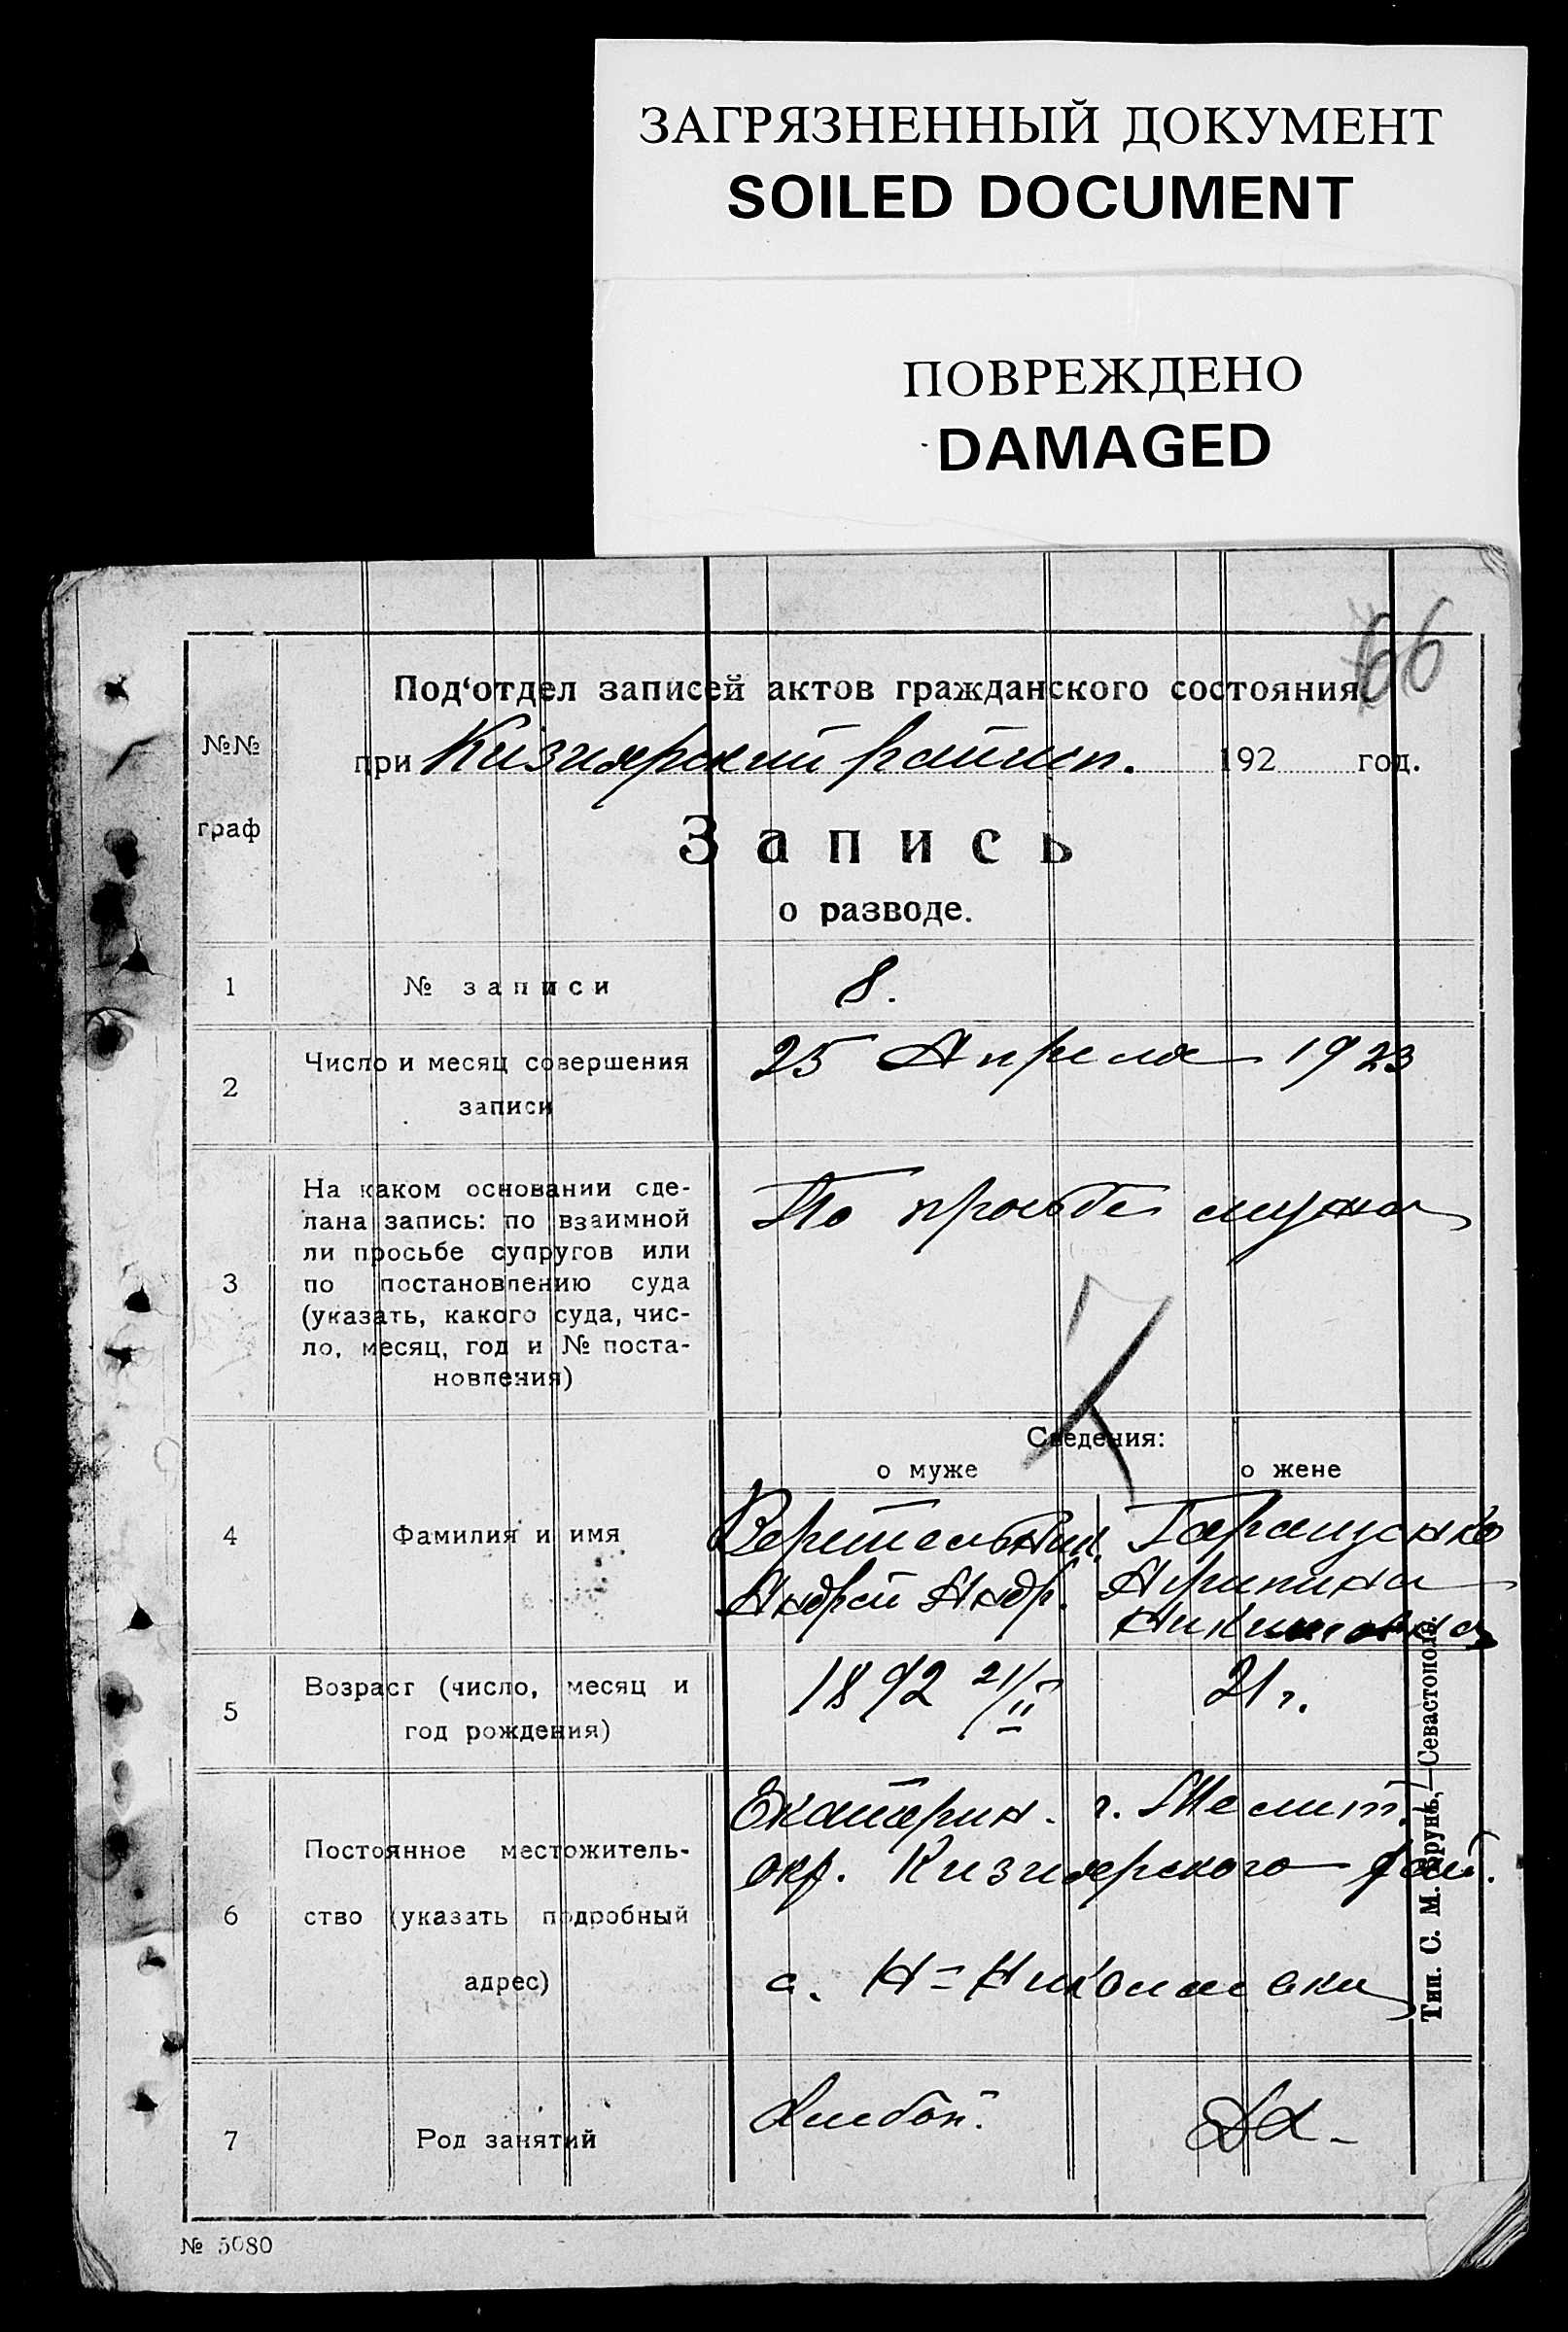 ЗАГРЯЗНЕННЫЙ ДОКУМЕНТ
SOILED DOCUMENT
ПОВРЕЖДЕНО
DAMAGED
66
Под‘отдел записей актов гражданского состояния
при Кизиярский райисп. 192 год.
№№
граф
Запись
о разводе.
1 № записи 8.
2 Число и месяц совершения записи
25 Апреля 1923
3 На каком основании сде-
лана запись: по взаимной
ли просьбе супругов или
по постановлению суда
(указать, какого суда, чис-
ло, месяц, год и № поста-
новления)
По просьбе мужа
Сведения:
о муже о жене
4 Фамилия и имя
Веретельник
Андрей Андр.
Гаращенко
Агрипина
Никитовна
5 Возраст (число, месяц и
год рождения)
1892 21/II
21 г.
6 Постоянное местожитель-
ство (указать подробный
адрес)
Екатерин. г. Мелит.
окр. Кизиярского рай.
с. Н=Николаевки
7 Род занятий
Хлебоп.
Тип. С. М. Брунъ,—Севастополь.
№ 5080